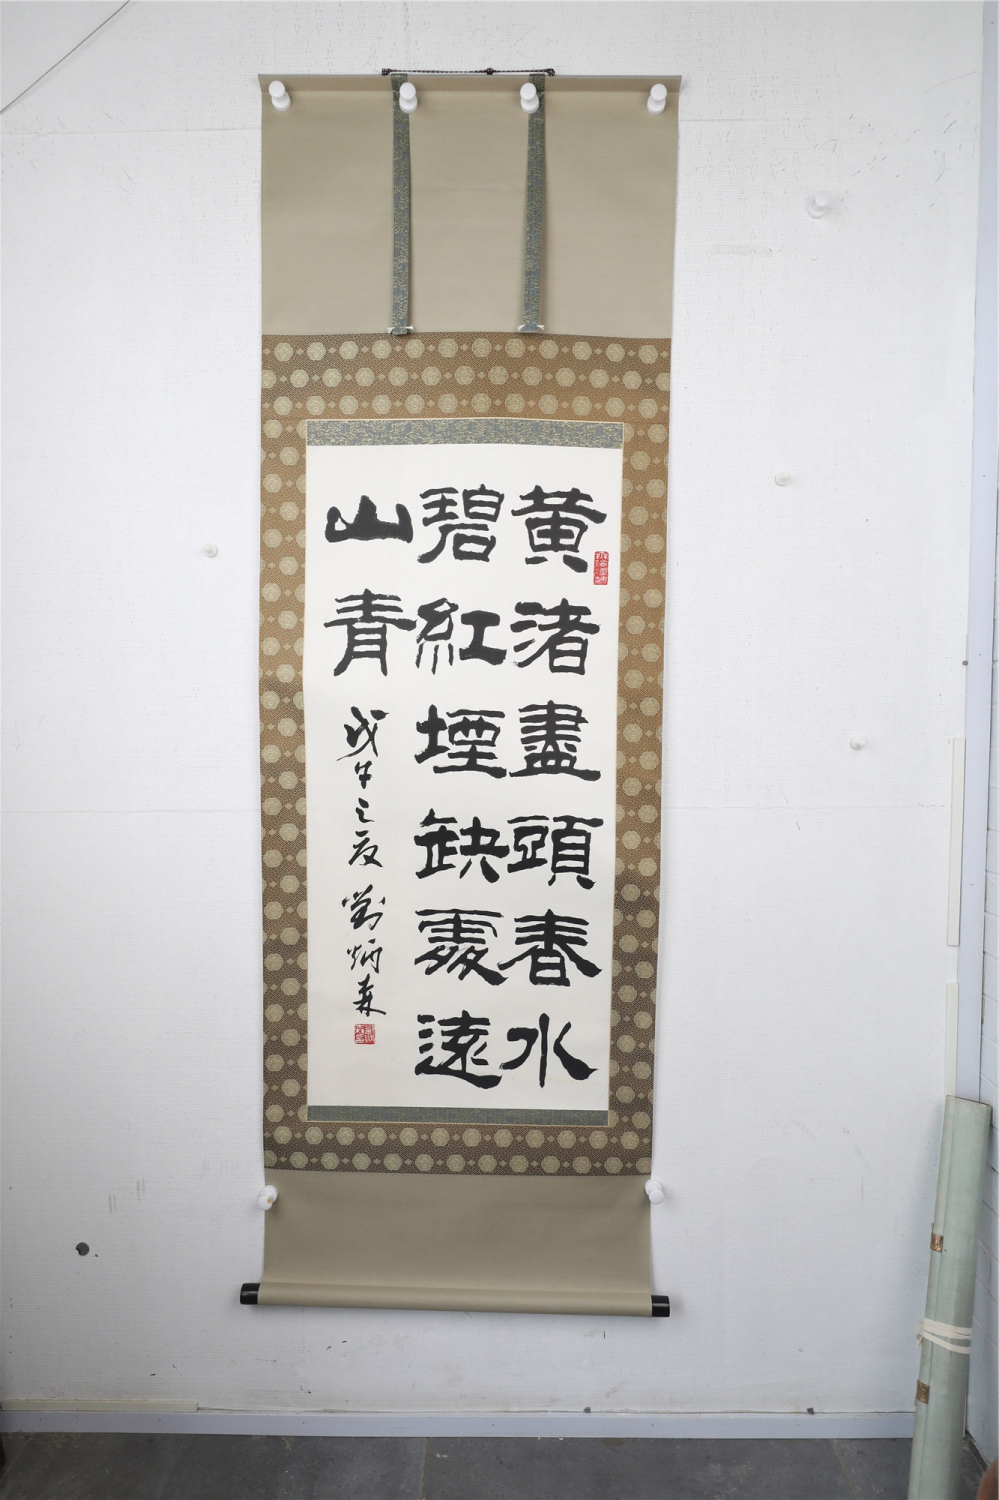 黄渚盡頭春水
碧紅堙缺處遠
山青
戊午之夏劉炳森